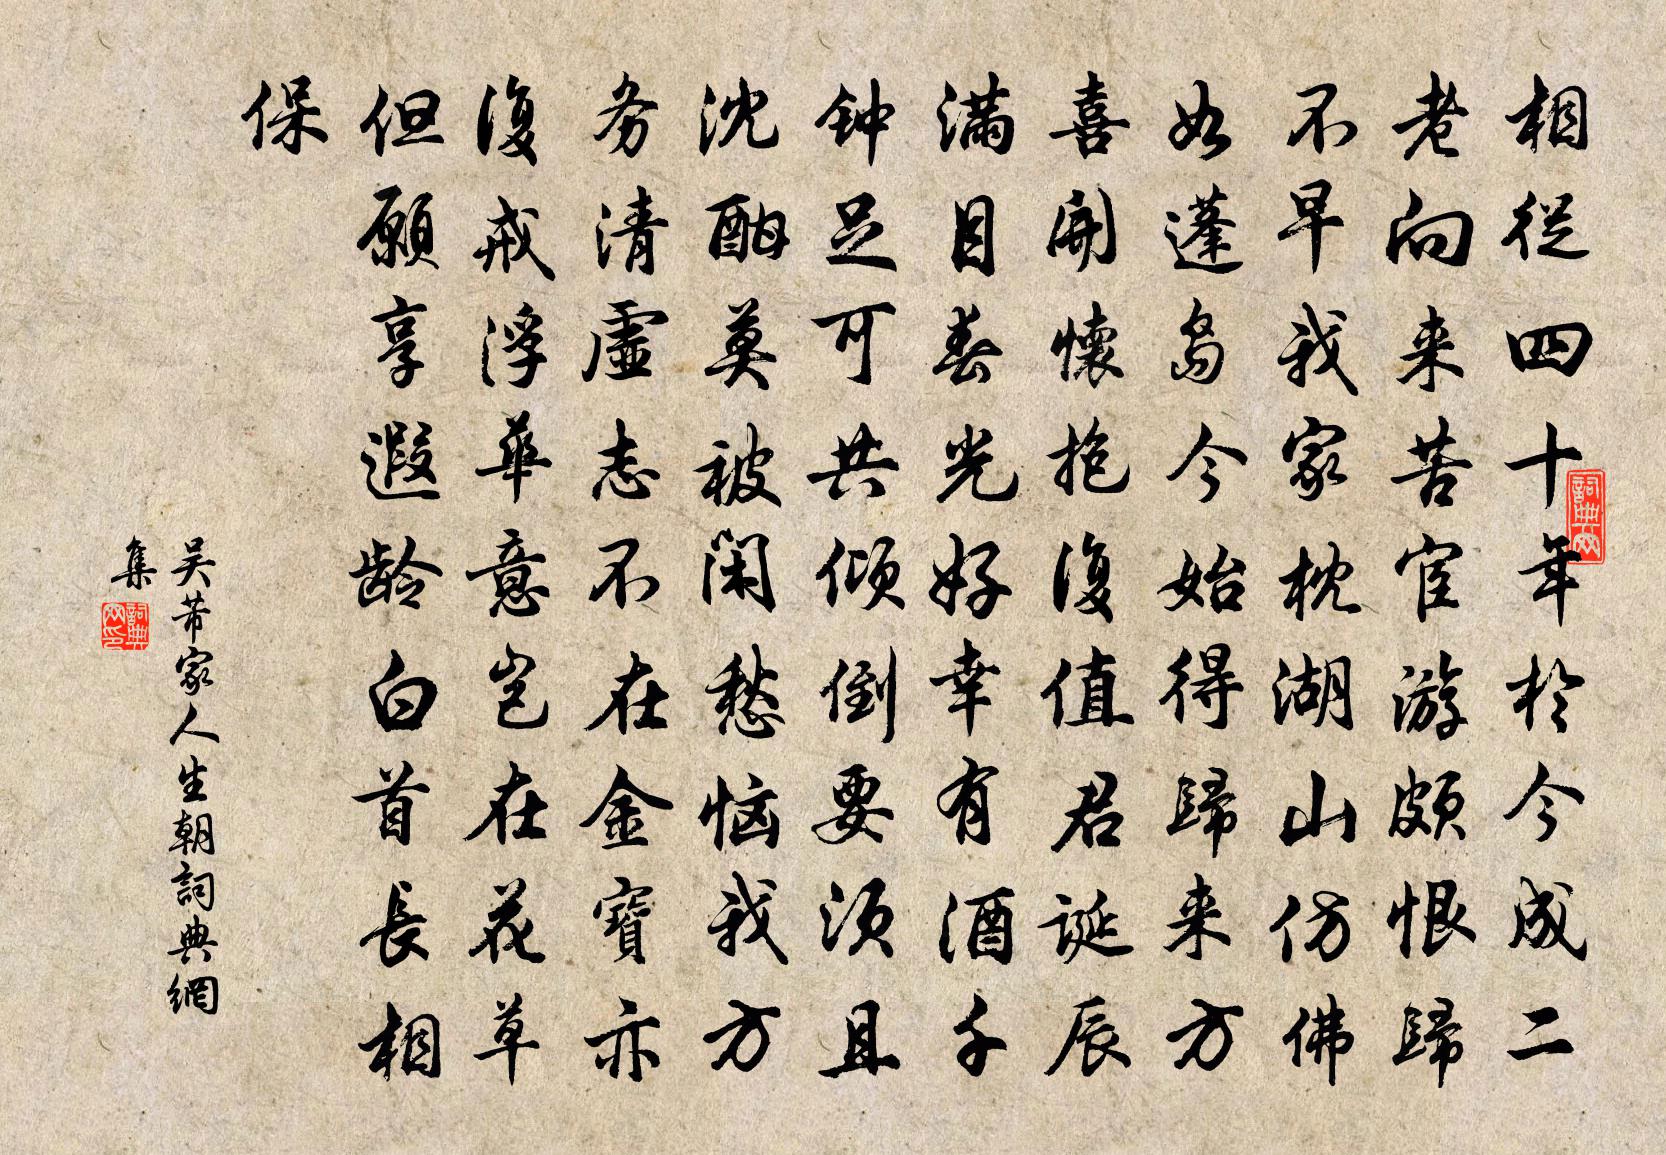 相從四十年於今成二
老向来苦宦游頗恨歸
不早我家枕湖山仿佛
如蓬島今始得歸来方
喜開懷抱復值君誕辰
滿目春光好幸有酒千
钟足可共倾倒要须且
沈酣莫被闲愁恼我方
务清虛志不在金寶亦
復戒浮華意岂在花草
但願享遐龄白首長相
保
吴芾家人生朝詞典網
集
詞典网
詞典网印